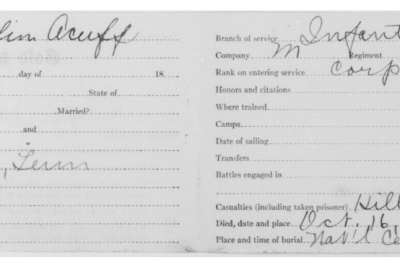 lin Acuff
day of 18
State of
Married?
and
, Tenn
Branch of service Infant
Company M Regiment
Rank on entering service Corp
Honors and citations
Where trained
Camps
Date of sailing
Transfers
Battles engaged in
Casualties (including taken prisoner) Kill
Died, date and place Oct. 16,
Place and time of burial Nat'l Ce